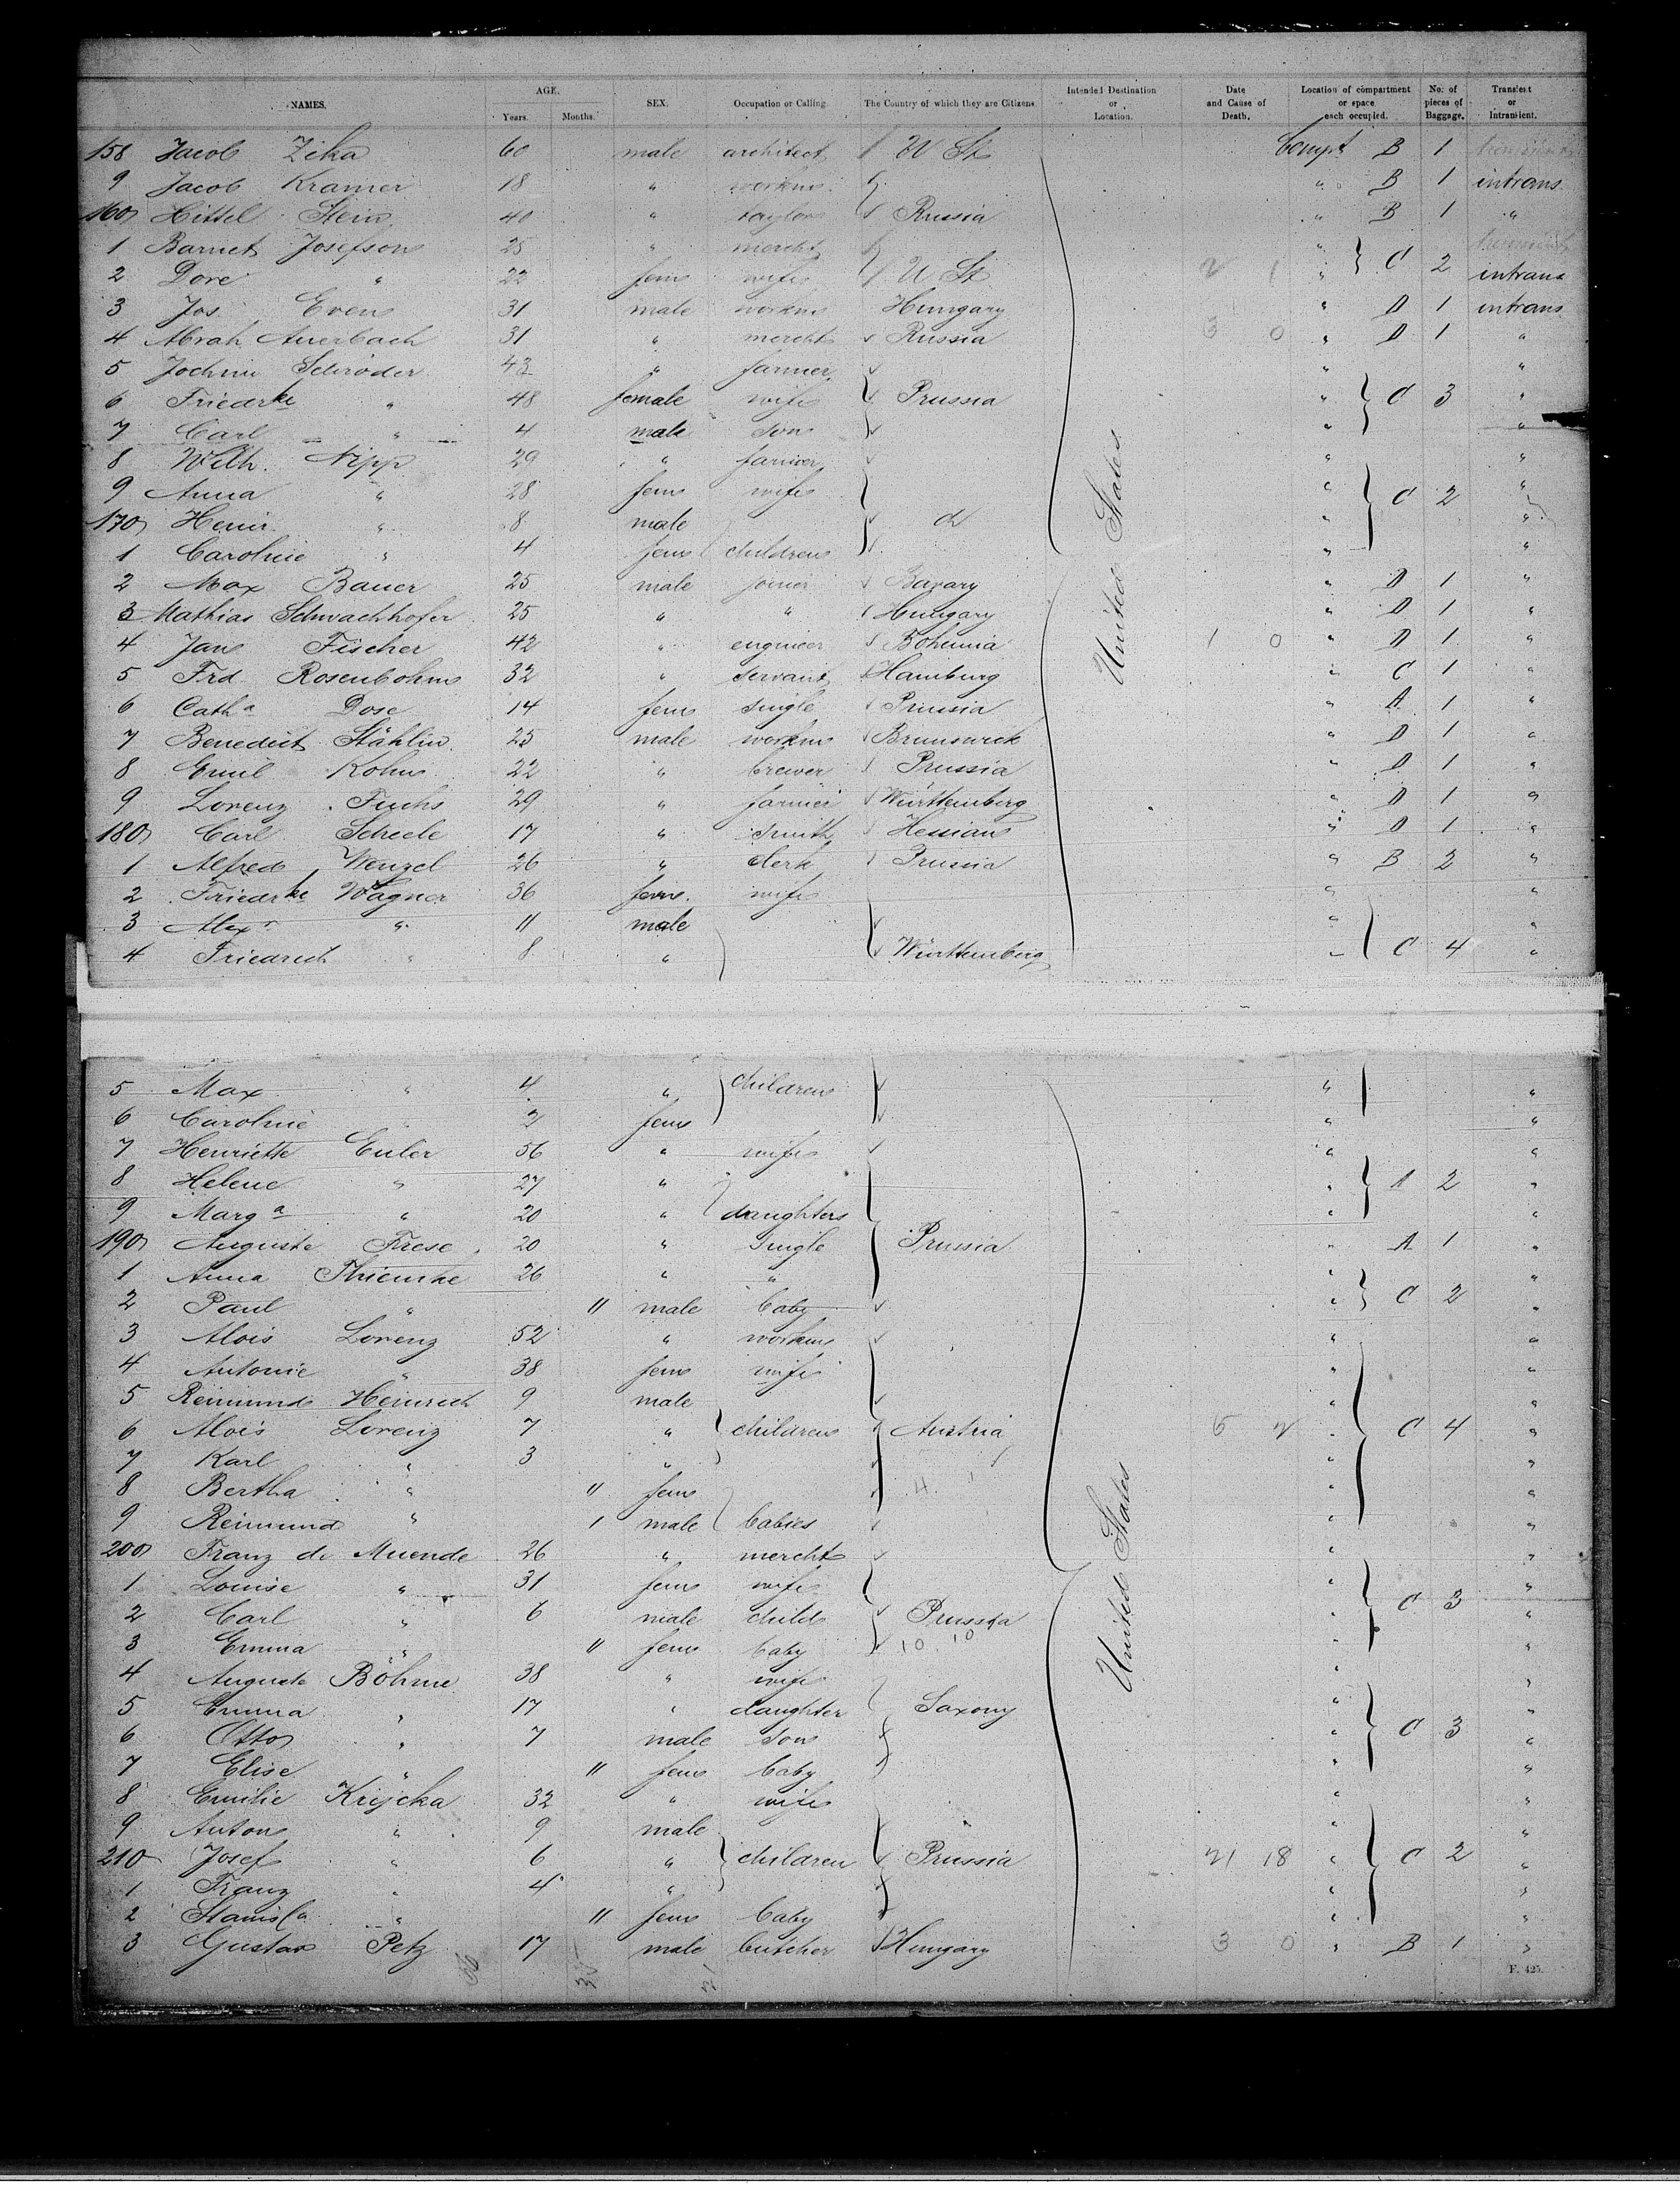 NAMES. AGE. Years. Months. SEX. Occupation or Calling. The Country of which they are Citizens. Intended Destination or Location. Date and Cause of Death. Location of compartment or space each occupied. No. of pieces of Baggage. Transient or Intransient.
158 Jacob Zika 60 male architect U St Compt B 1
9 Jacob Kramer 18 " workm " B 1 intrans
160 Hittel Stein 40 " taylor Russia " B 1 "
1 Barnet Josefson 25 " mercht "
2 Dore " 22 fem wife U St 2 1 " C 2 intrans
3 Jos Even 31 male workm Hungary " D 1 intrans
4 Abrah Auerbach 31 " mercht Russia 3 0 " D 1 "
5 Jochim Schröder 43 " farmer " "
6 Friedrke " 48 female wife Prussia " C 3 "
7 Carl " 4 male son " "
8 Wilh. Nipp 29 " farmer " "
9 Anna " 28 fem wife " C 2 "
170 Heinr. " 8 male do " "
1 Caroline " 4 fem children " "
2 Max Bauer 25 male joiner Bavary " D 1 "
3 Mathias Schwachhofer 25 " " Hungary " D 1 "
4 Jan Fischer 42 " engineer Bohemia 1 0 " D 1 "
5 Frd. Rosenbohm 32 " servant Hamburg " C 1 "
6 Catha Dose 14 fem single Prussia " A 1 "
7 Benedict Stählin 25 male workm Brunswick " D 1 "
8 Emil Kohn 22 " brewer Prussia " D 1 "
9 Lorenz Fuchs 29 " farmer Württemberg " D 1 "
180 Carl Scheele 17 " smith Hessian " D 1 "
1 Alfred Wenzel 26 " clerk Prussia " B 2 "
2 Friedrke Wagner 36 fem. wife " "
3 Alexr " 11 male " "
4 Friedrich " 8 " Württemberg " C 4 "
United States
5 Max " 4 " children " "
6 Caroline " 2 fem " "
7 Henriette Euler 56 " wife " "
8 Helene " 27 " " A 2 "
9 Marga " 20 " daughters " "
190 Auguste Frese 20 " single Prussia " A 1 "
1 Anna Thiemke 26 " " " "
2 Paul " 11 male baby " C 2 "
3 Alois Lorenz 52 " workm " "
4 Antonie " 38 fem wife " "
5 Reimund Heinrich 9 male " "
6 Alois Lorenz 7 " children Austria 5 2 " C 4 "
7 Karl " 3 " " "
8 Bertha " 11 fem 4 " "
9 Reimund " 1 male babies " "
200 Franz de Muende 26 " mercht " "
1 Louise " 31 fem wife " "
2 Carl " 6 male child Prussia " C 3 "
3 Emma " 11 fem baby 10 10 " "
4 Auguste Böhme 38 " wife " "
5 Emma " 17 " daughter Saxony " "
6 Otto " 7 male son " C 3 "
7 Elise " 11 fem baby " "
8 Emilie Krejcka 32 " wife " "
9 Anton " 9 male " "
210 Josef " 6 " children Prussia 21 18 " C 2 "
1 Franz " 4 " " "
2 Stanisla " 11 fem baby " "
3 Gustav Petz 17 male butcher Hungary 3 0 " B 1 "
United States
F. 425.